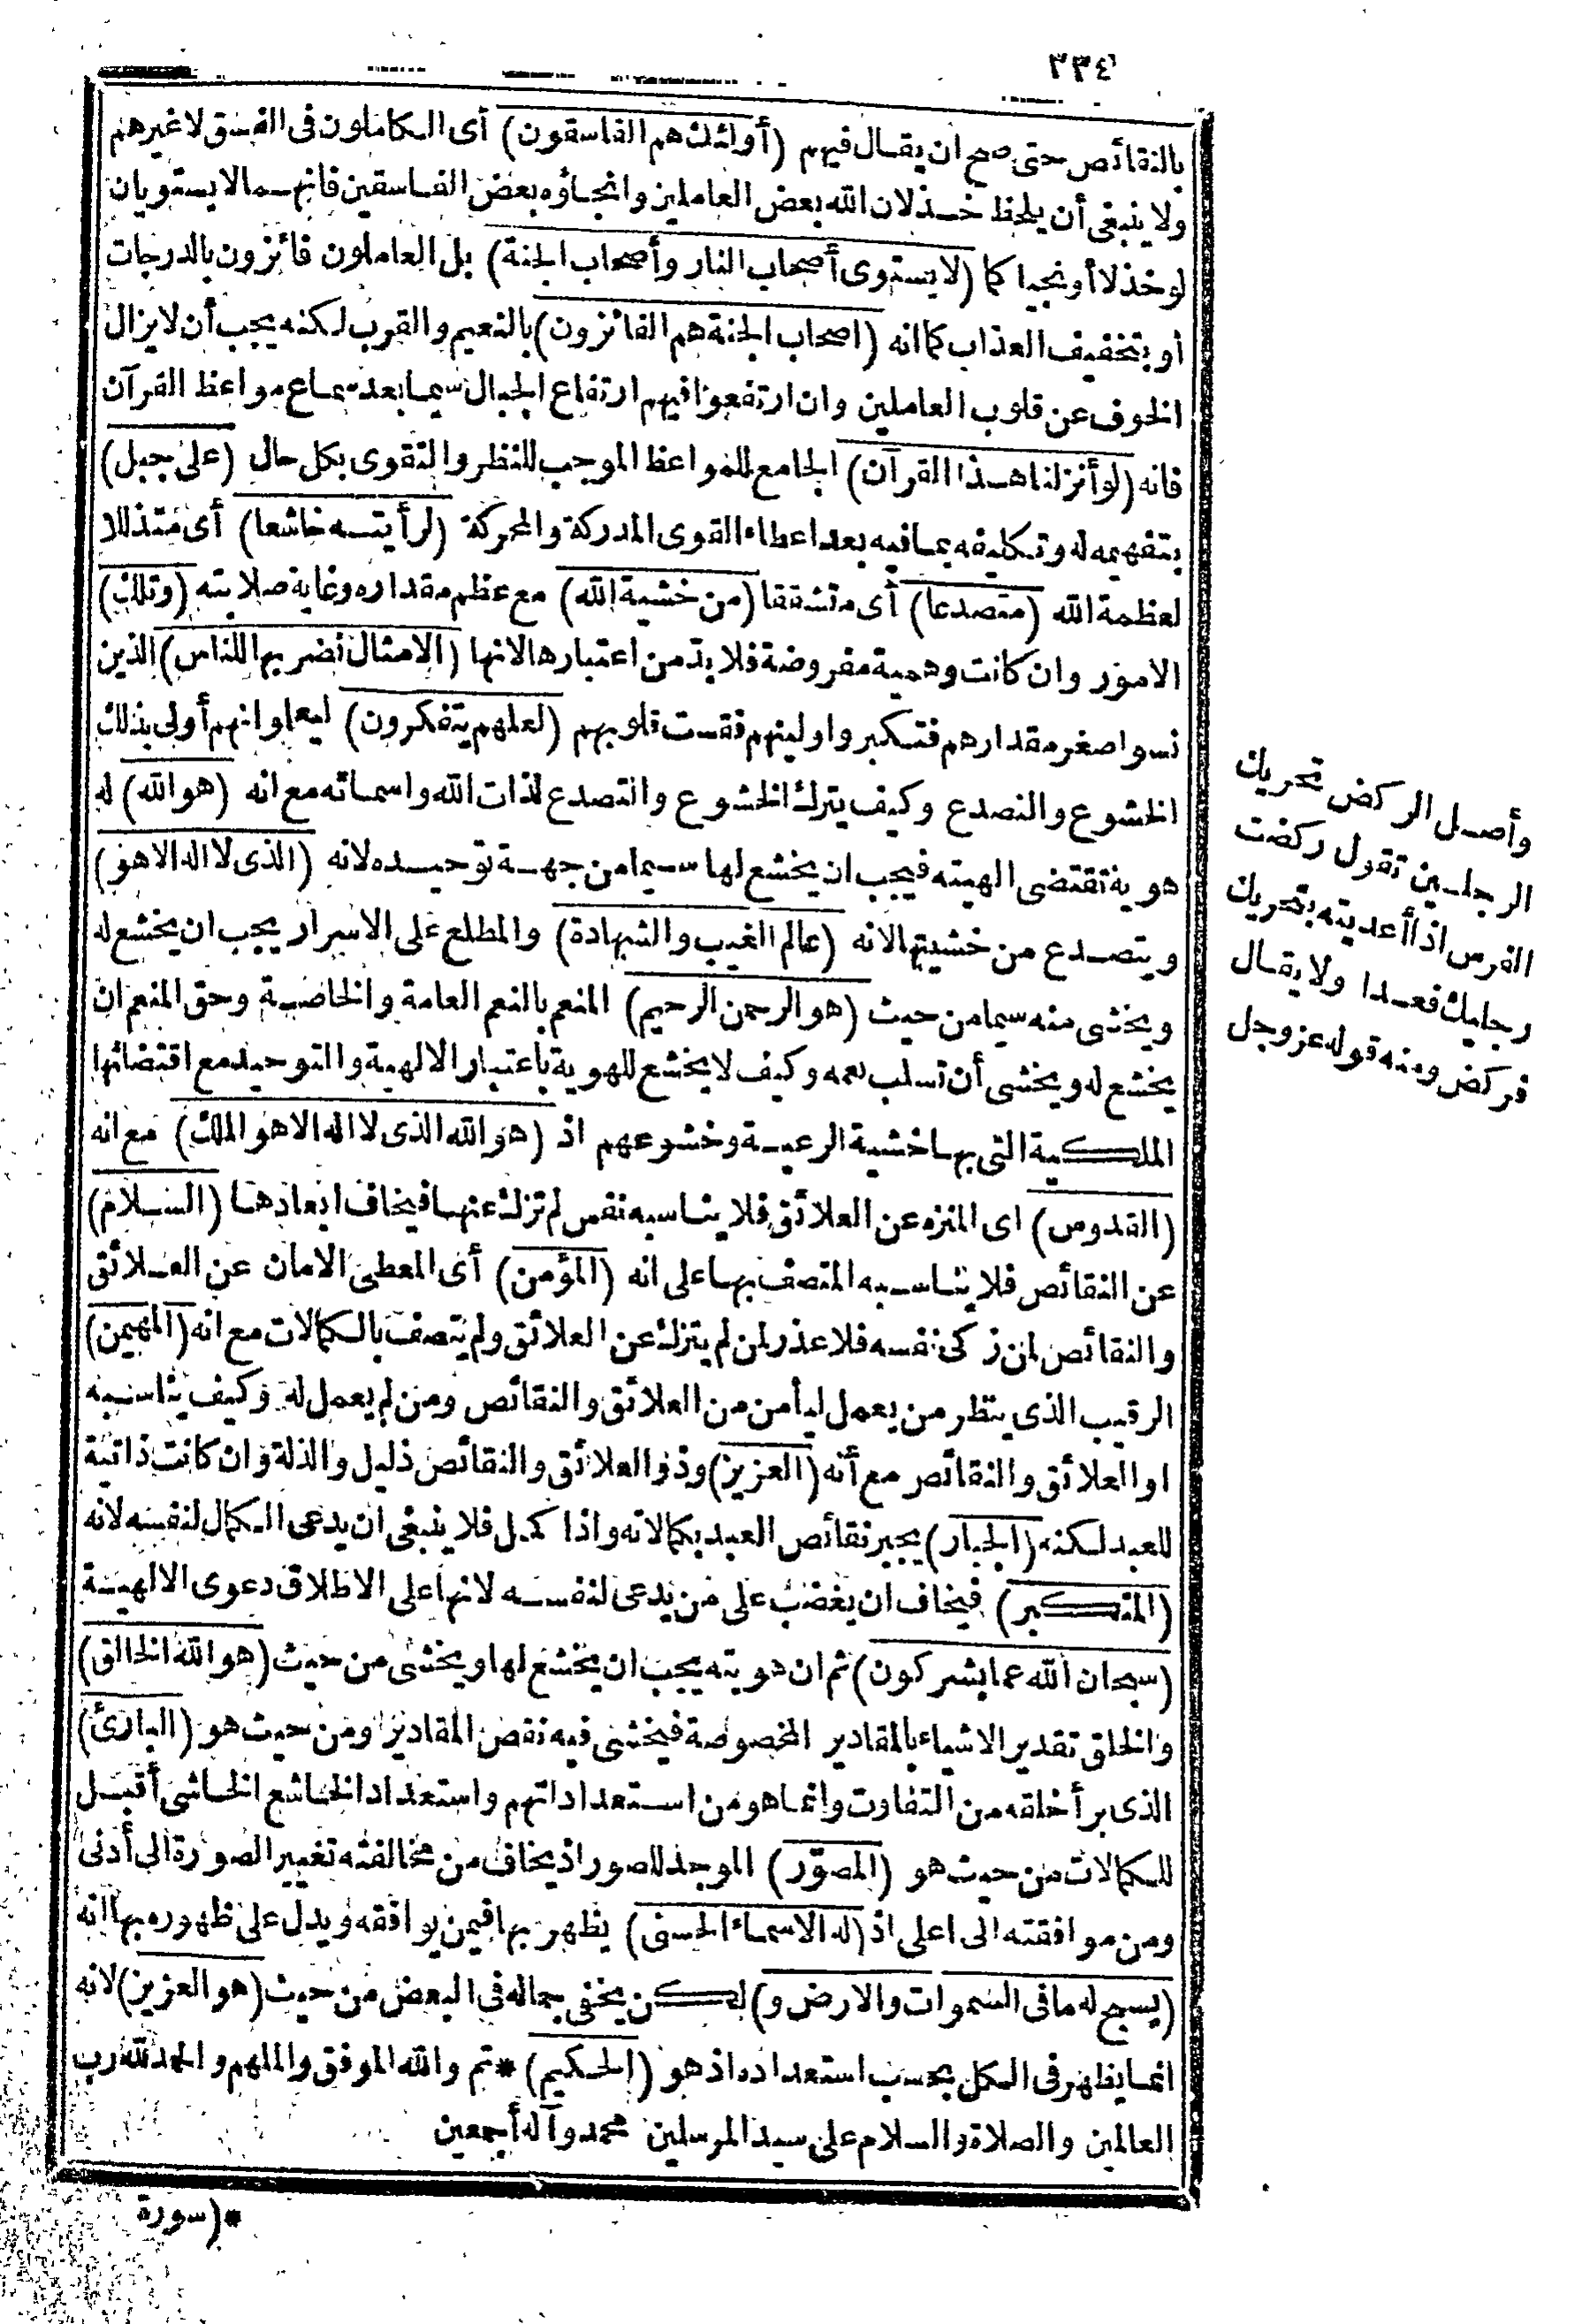 ٣٣٤
بالنقائص حتى صح ان يقال فيهم (أولئك هم الفاسقون) أى الكاملون فى الفسق لا غيرهم
ولا ينبغى أن يلحظ خذلان الله بعض العاملين وانجاؤه بعض الفاسقين فانهما لا يستويان
لو خذلا أو نجيا كما (لا يستوى أصحاب النار وأصحاب الجنة) بل العاملون فائزون بالدرجات
أو بتخفيف العذاب كما انه (اصحاب الجنة هم الفائزون) بالنعيم والقرب لكنه يجب أن لا يزال
الخوف عن قلوب العاملين وان ارتفعوا فيهم ارتفاع الجبال سيما بعد سماع مواعظ القرآن
فانه (لو أنزلنا هذا القرآن) الجامع للمواعظ الموجب للنظر والتقوى بكل حال (على جبل)
بتفهيمه له وتكليفه بما فيه بعد اعطاء القوى المدركة والمحركة (لرأيته خاشعا) أى متذللا
لعظمة الله (متصدعا) أى متشققا (من خشية الله) مع عظم مقداره وغاية صلابته (وتلك)
الامور وان كانت وهمية مفروضة فلا بد من اعتبارها لانها (الامثال نضربها للناس) الذين
نسوا صغر مقدارهم فتكبروا ولينهم فقست قلوبهم (لعلهم يتفكرون) ليعلوا انهم أولى بذلك
الخشوع والتصدع وكيف يترك الخشوع والتصدع لذات الله واسمائه مع انه (هو الله) له
هوية تقتضى الهيته فيجب ان يخشع لها سيما من جهة توحيده لانه (الذى لا اله الا هو)
ويتصدع من خشيتها لانه (عالم الغيب والشهادة) والمطلع على الاسرار يجب ان يخشع له
ويخشى منه سيما من حيث (هو الرحمن الرحيم) المنعم بالنعم العامة والخاصة وحق المنعم ان
يخشع له ويخشى أن تسلب نعمه وكيف لا يخشع للهوية باعتبار الالهية والتوحيد مع اقتضائها
الملكية التى بها خشية الرعية وخشوعهم اذ (هو الله الذى لا اله الا هو الملك) مع انه
(القدوس) اى المنزه عن العلائق فلا يناسبه نفس لم تزك عنها فيخاف ابعادها (السلام)
عن النقائص فلا يناسبه المتصف بها على انه (المؤمن) أى المعطى الامان عن العلائق
والنقائص لمن زكى نفسه فلا عذر لمن لم يتزك عن العلائق ولم يتصف بالكمالات مع انه (المهيمن)
الرقيب الذى ينظر من يعمل ليأمن من العلائق والنقائص ومن لم يعمل له وكيف يناسبه
اولو العلائق والنقائص مع أنه (العزيز) وذو العلائق والنقائص ذليل والذلة وان كانت ذاتية
للعبد لكنه (الجبار) يجبر نقائص العبد بكمالاته واذا كمل فلا ينبغى ان يدعى الكمال لنفسه لانه
(المتكبر) فيخاف ان يغضب على من يدعى لنفسه لانها على الاطلاق دعوى الالهية
(سبحان الله عما يشركون) ثم ان هويته يجب ان يخشع لها ويخشى من حيث (هو الله الخالق)
والخلق تقدير الاشياء بالمقادير المخصوصة فيخشى فيه نقص المقادير ومن حيث هو (البارئ)
الذى برأ خلقه من التفاوت وانما هو من استعداداتهم واستعداد الخاشع الخاشى أقبل
للكمالات من حيث هو (المصور) الموجد للصور اذ يخاف من مخالفته تغيير الصورة الى أدنى
ومن موافقته الى اعلى اذ (له الاسماء الحسنى) يظهر بها فيمن يوافقه ويدل على ظهوره بها انه
(يسبح له ما فى السموات والارض و) لكن يخفى جماله فى البعض من حيث (هو العزيز) لانه
انما يظهر فى الكل بحسب استعداده اذ هو (الحكيم) * تم والله الموفق والملهم والحمد لله رب
العالمين والصلاة والسلام على سيد المرسلين محمد وآله أجمعين
*(سورة
وأصل الركض تحريك
الرجلين تقول ركضت
الفرس اذا أعديته بتحريك
رجليك فعدا ولا يقال
فركض ومنه قوله عز وجل